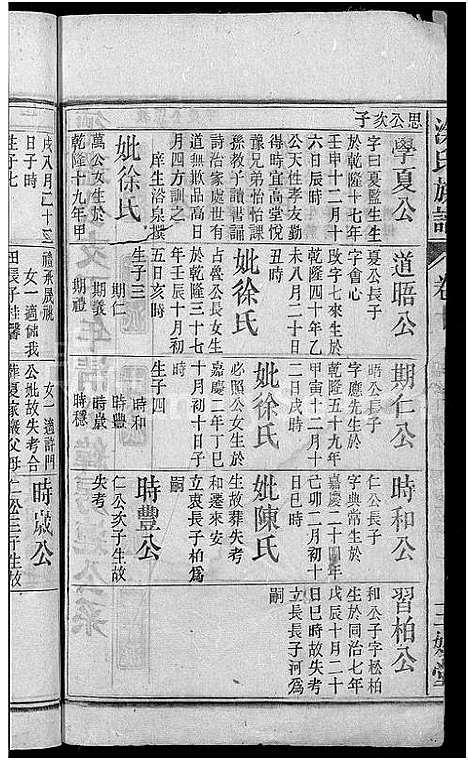 思公次子
學夏公
字曰夏監生生
於乾隆十七年
壬申十二月十
六日辰時
公天性孝友勤
得時宜高堂悅
豫兄弟怡怡課
孫教子讀書誦
詩治家處世有
道無欺品高日
月四方訓之
庠生浴泉撰
妣徐氏
萬公女生於
乾隆十九年甲
戌八月二十三
日子時
生子七
道晤公
夏公長子
字會心
乾隆四十年乙
未八月二十日
丑時
妣徐氏
占魯公長女生
於乾隆三十七
年壬辰十月初
五日亥時
生子三
期仁
期義
期禮
女一適
期仁公
晤公長子
字應先生於
乾隆五十九年
甲寅十二月十
二日戌時
妣徐氏
必照公女生於
嘉慶二年丁巳
十月初子時
生子四
時和
時豐
時歲
時穩
女一適許門
公妣故失考合
葬夏家嚴父母
時和公
仁公長子
字典常生於
嘉慶二十四年
己卯二月初十
日巳時
妣陳氏
生故葬失考
和遷來安
立衷長子柏為
嗣
時豐公
仁公次子生故
失考
時歲公
仁公三子生故
習柏公
和公子字松柏
生於同治七年
戊辰十月二十
日巳時故失考
立長長子河為
嗣
氏族譜
卷
堂